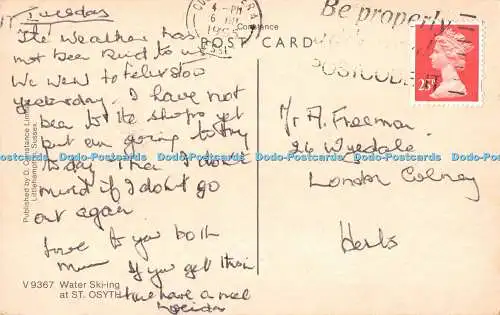 Tuesday
The Weather has
not been kind to us
We went to Felixstow
yesterday. I have not
been to the shops yet
but am going to try
today then I don't
mind if I don't go
out again
Love to you both
Mum If you get this
have a nice
V 9367 Water Ski-ing
at ST. OSYTH
Published by D. Constance Limited,
Littlehampton, Sussex.
Constance
POST CARD
4 - PM
6
Be properly
POSTCODE IT
Mr A. Freeman
26 Wyedale
London Colney
Herts
Dods-Postcards Dods-Postcards Dods-Postcards Dods-Postcards Dods-Postcards